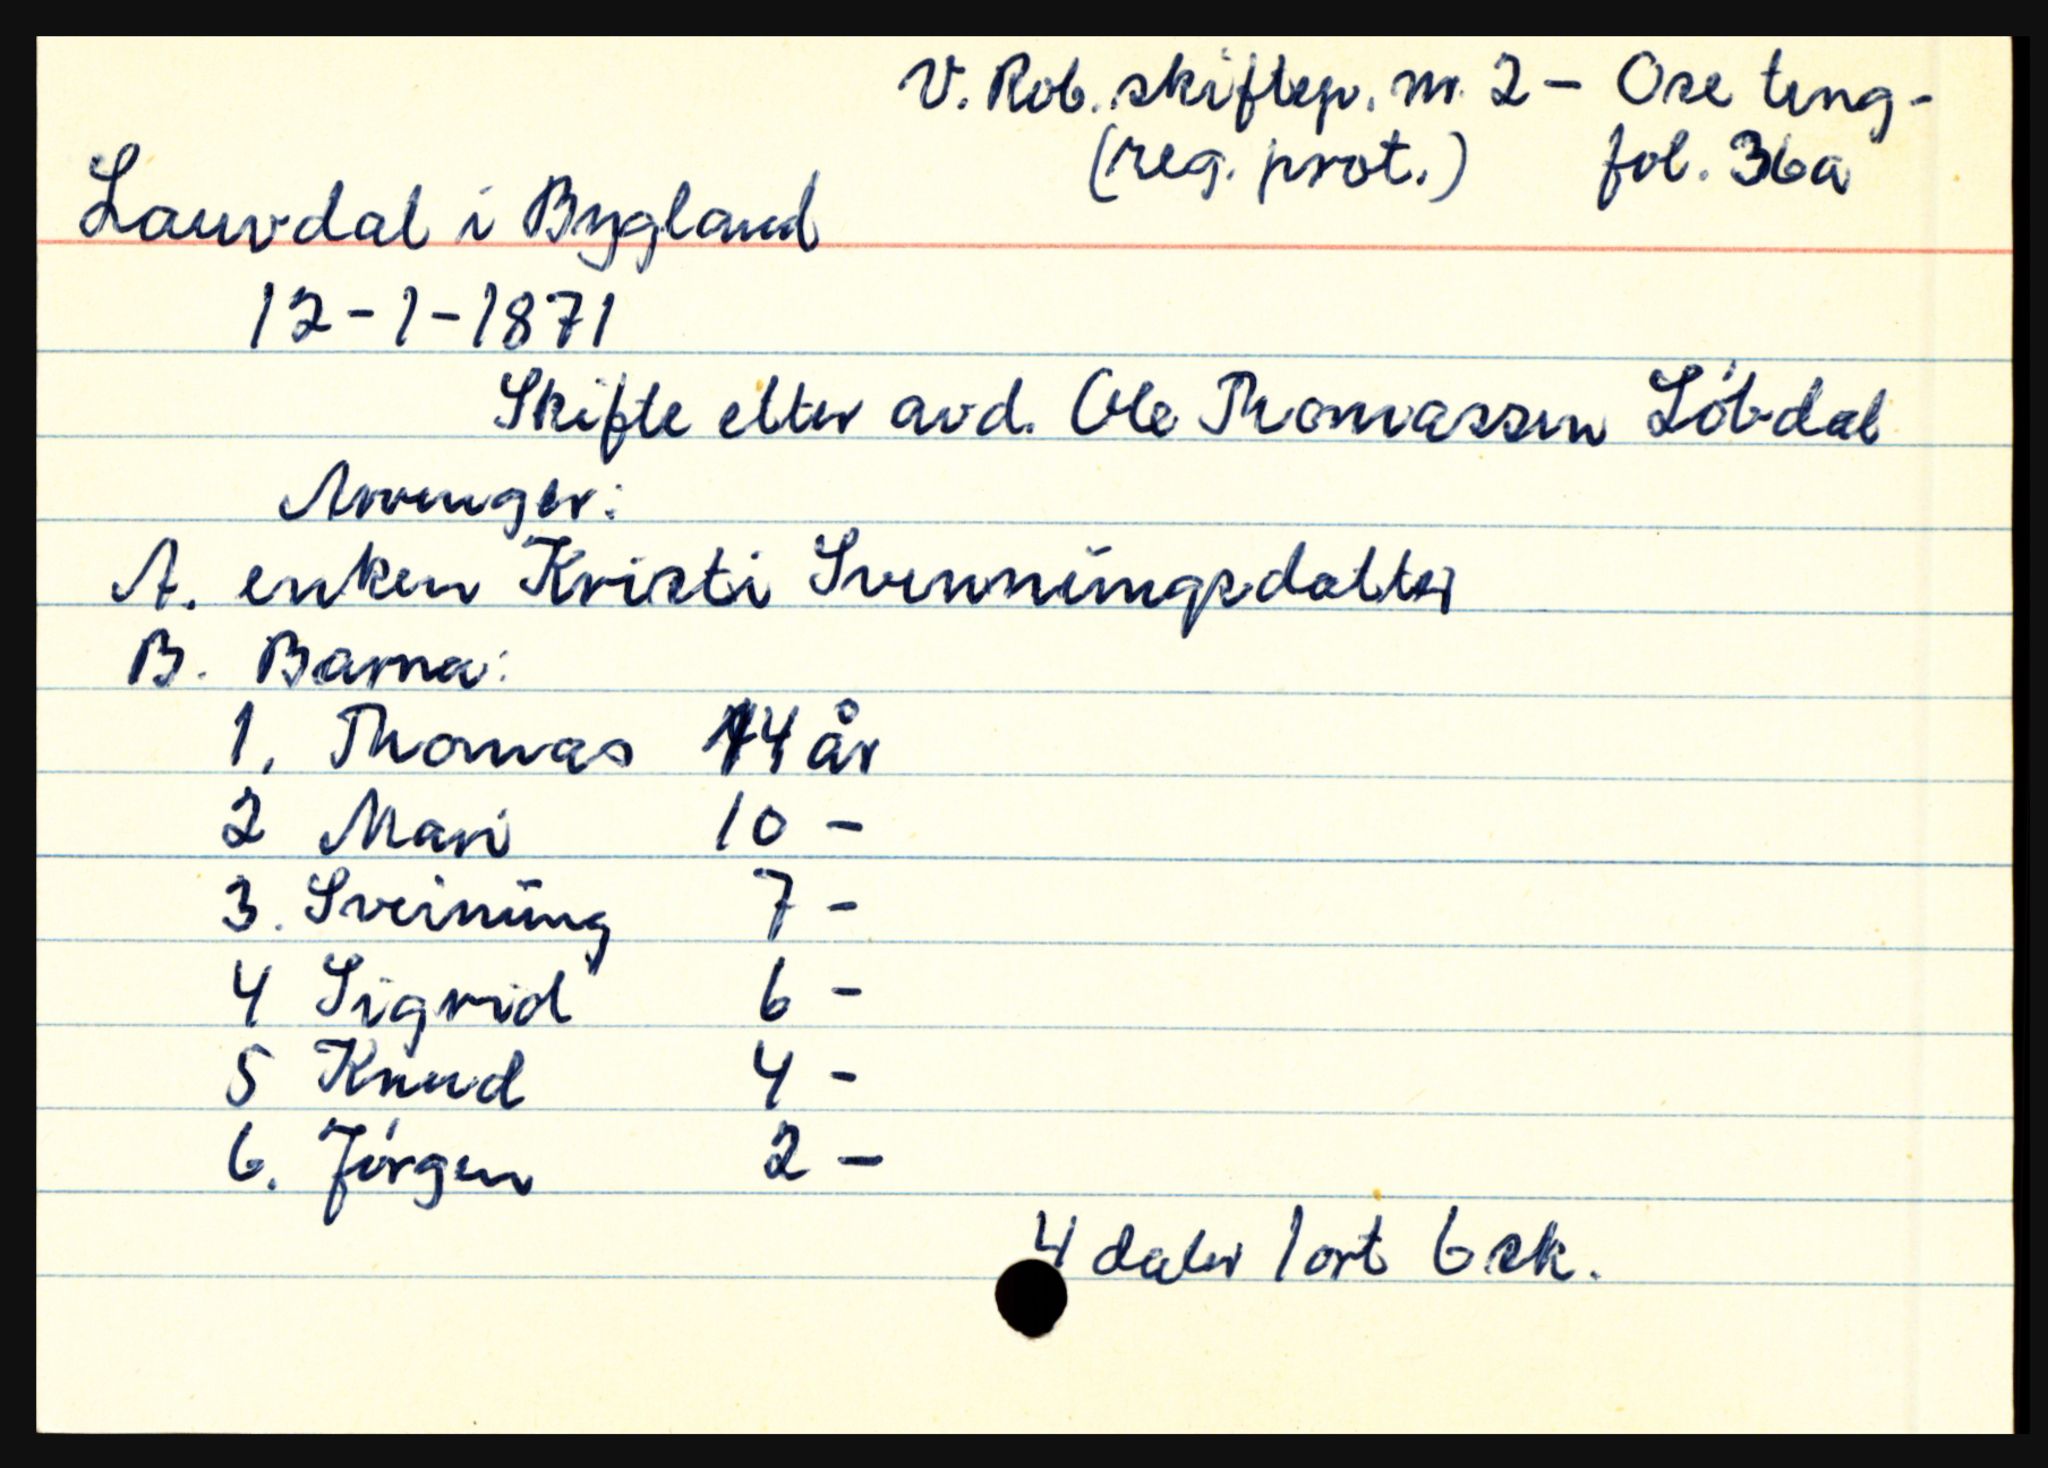 V. Rob. skiftep. nr. 2 - Ose ting -
(reg. prot.) fol. 36a
Lauvdal i Bygland
12-1-1871
Skifte etter avd. Ole Thomassen Löbdal
Arvinger:
A. enken Kristi Svennŭngsdatter
B. Barna:
1. Thomas 14 år
2 Mari 10 -
3. Sveinŭng 7 -
4 Sigrid 6 -
5 Knud 4 -
6. Jörgen 2 -
4 daler 1 ort 6 sk.